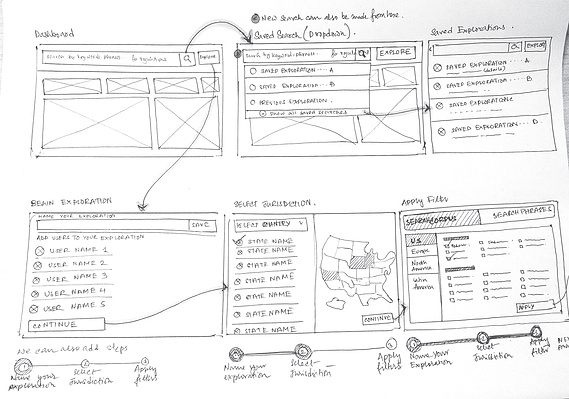 New search can also be made from here.
Dashboard
Saved Search (Dropdown).
Saved Explorations.
Search by keyword-phrases for regulations
EXPLORE
Search by keyword-phrases for
EXPLORE
EXPLORE
SAVED EXPLORATION ... A
SAVED EXPLORATION ... B
PREVIOUS EXPLORATION.
Show all saved searches
SAVED EXPLORATION ... A
(details)
SAVED EXPLORATION ... B
SAVED EXPLORATION
SAVED EXPLORATION ... D.
BEGIN EXPLORATION
NAME YOUR EXPLORATION
SAVE
ADD USERS TO YOUR EXPLORATION
USER NAME 1
USER NAME 2
USER NAME 3
USER NAME 4
USER NAME 5
CONTINUE
SELECT JURISDICTION.
SELECT COUNTRY
STATE NAME
STATE NAME
STATE NAME
STATE NAME
STATE NAME
STATE NAME
STATE NAME
CONTINUE
Apply Filter
SEARCH CORPUS
SEARCH PHRASES
US
Europe
North
America
Latin
America
APPLY
We can also add steps
1
2
3
Name your
exploration
Select
Jurisdiction
Apply
filters
3
Name your
exploration
Select
Jurisdiction
Apply
filters
Name your
Exploration
Select
Jurisdiction
Apply
filter